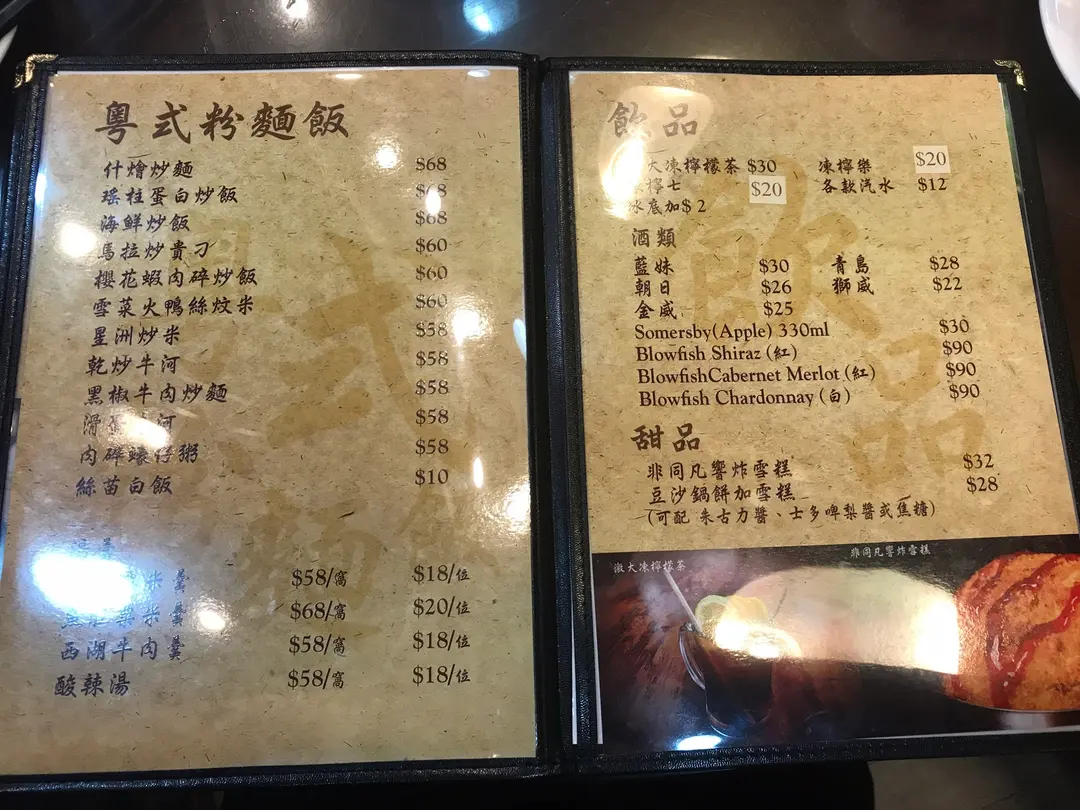 粵式粉麵飯
什燴炒麵 $68
瑤柱蛋白炒飯 $68
海鮮炒飯 $68
馬拉炒貴刁 $60
櫻花蝦肉碎炒飯 $60
雪菜火鴨絲炆米 $60
星洲炒米 $58
乾炒牛河 $58
黑椒牛肉炒麵 $58
滑 河 $58
肉碎蠔仔粥 $58
絲苗白飯 $10
羹 $58/窩 $18/位
粟米羹 $68/窩 $20/位
西湖牛肉羹 $58/窩 $18/位
酸辣湯 $58/窩 $18/位
飲品
大凍檸檬茶 $30 凍檸樂 $20
檸七 $20 各款汽水 $12
冰底加$ 2
酒類
藍妹 $30 青島 $28
朝日 $26 獅威 $22
金威 $25
Somersby(Apple) 330ml $30
Blowfish Shiraz (紅) $90
BlowfishCabernet Merlot (紅) $90
Blowfish Chardonnay (白) $90
甜品
非同凡響炸雪糕 $32
豆沙鍋餅加雪糕 $28
(可配 朱古力醬、士多啤梨醬或焦糖)
非同凡響炸雪糕
激大凍檸檬茶